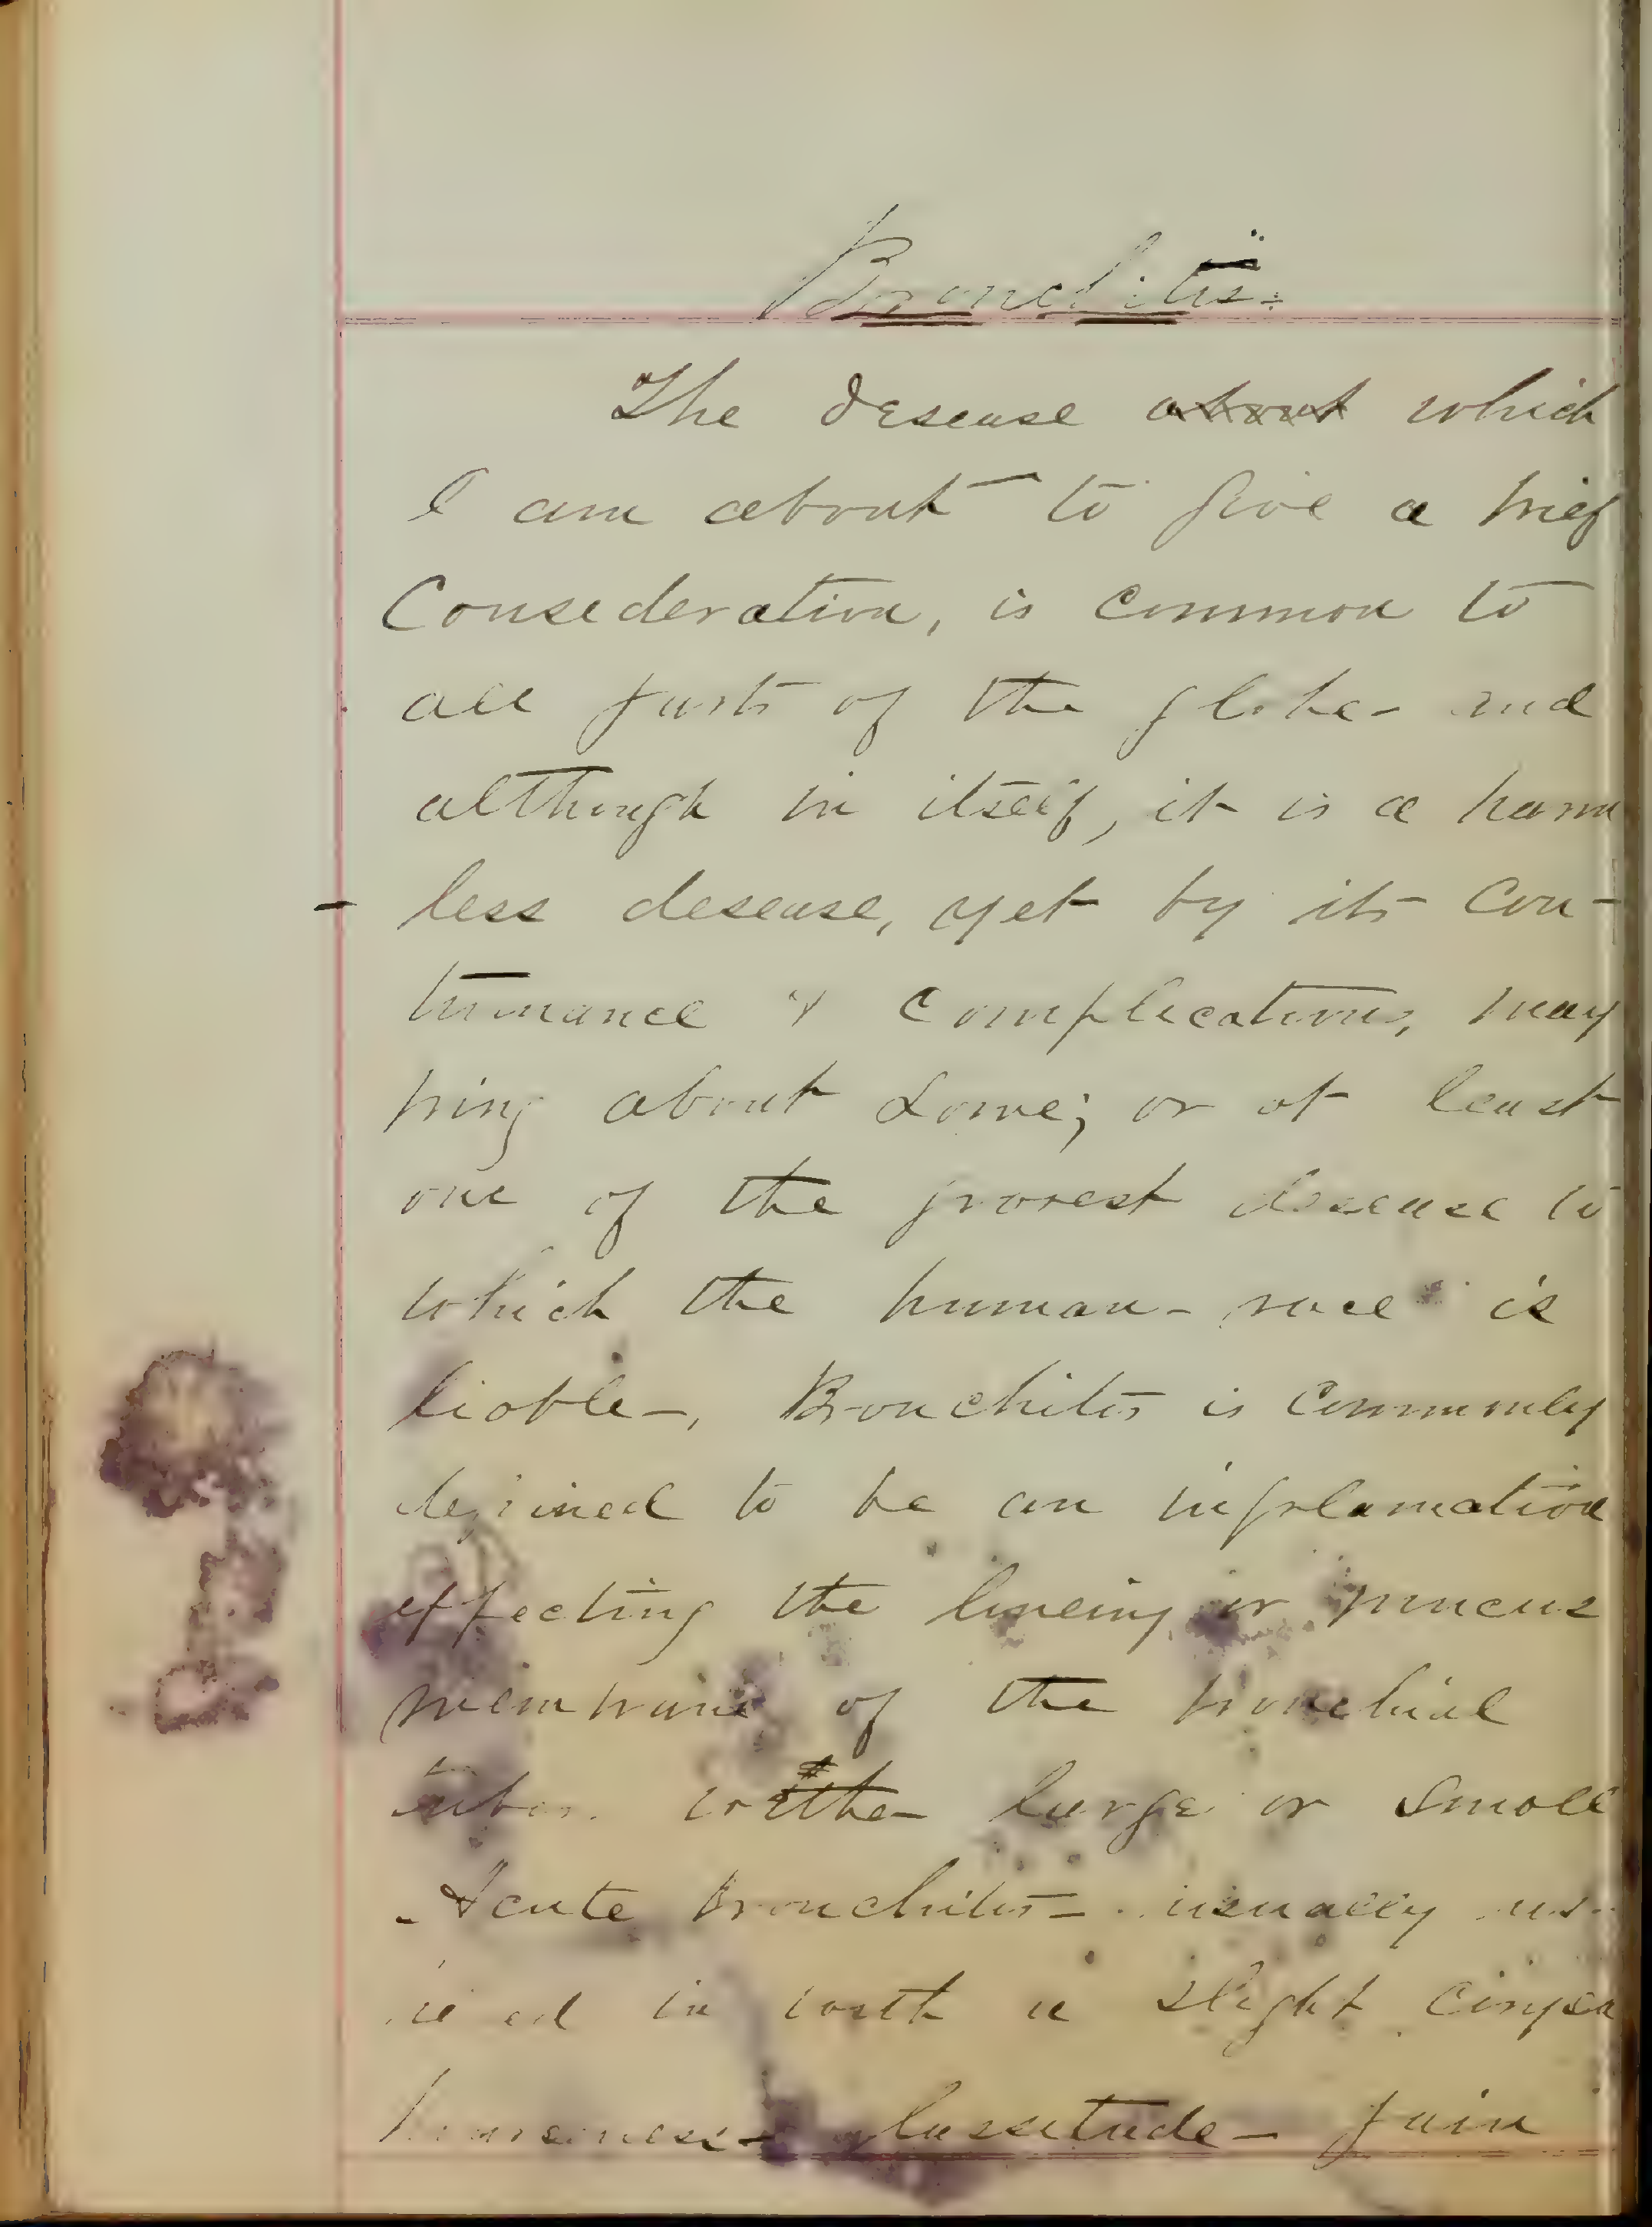 Bronchitis.
The desease about which
I am about to give a brief
Consederation, is common to
all parts of the globe - and
although in itself, it is a harm
less desease, yet by its con-
tinuance & complications, may
bring about some; or at least
one of the gravest disease to
which the human - race is
liable -, Bronchitis is commonly
defined to be an inflamation
effecting the lineing or mucus
membrane of the bronchial
tubes. either large or small
Acute bronchitis - usually
in with a slight
hoarseness - lassitude - pain